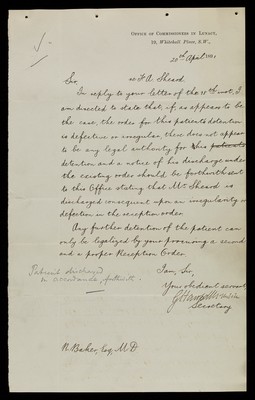 Office of Commissioners in Lunacy,
19, Whitehall Place, S.W.,
20th April 1881
Sir,
re F. A. Sheard.
In reply to your letter of the 18th inst, I
am directed to state that, if, as appears to be
the case, the order for this patient's detention
is defective or irregular, there does not appear
to be any legal authority for this patient's
detention and a notice of his discharge under
the existing order should be forthwith sent
to this Office stating that Mr Sheard was
discharged consequent upon an irregularity or
defection in the reception order.
Any further detention of the patient can
only be legalized by your procuring a second
and a proper Reception Order.
Patient discharged
in accordance
I am, Sir,
Your obedient servant
Secretary
R. Baker, Esq, M.D